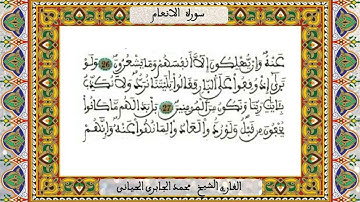 سورة الأنعام
عَنْهُ وَإِنْ يُّهْلِكُونَ إِلَّآ أَنفُسَهُمْ وَمَا يَشْعُرُونَ 26 وَلَوْ
تَرَىٰٓ إِذْ وُقِفُوا عَلَى النَّارِ فَقَالُوا يَٰلَيْتَنَا نُرَدُّ وَلَا نُكَذِّبُ
بِـَٔايَٰتِ رَبِّنَا وَنَكُونُ مِنَ الْمُومِنِينَ 27 بَلْ بَدَا لَهُم مَّا كَانُوا
يُخْفُونَ مِن قَبْلُ وَلَوْ رُدُّوا لَعَادُوا لِمَا نُهُوا عَنْهُ وَإِنَّهُمْ
القارئ الشيخ محمد الجابري الحياني